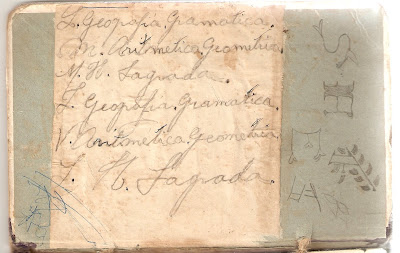 L. Geografia. Gramatica.
M. Aritmetica. Geometria.
M. H. Sagrada.
J. Geografia. Gramatica.
V. Aritmetica. Geometria.
S. H. Sagrada.